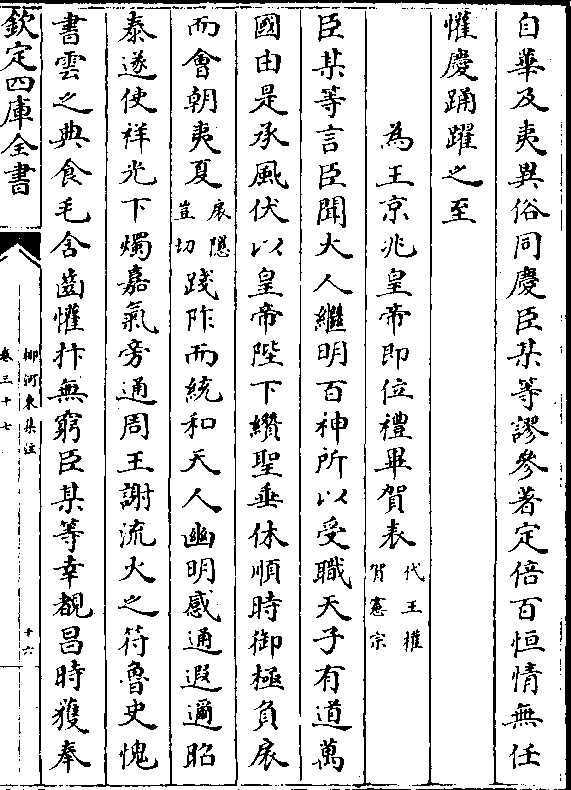 自華及夷異俗同慶臣某等謬參著定倍百恒情無任
懽慶踊躍之至
為王京兆皇帝即位禮畢賀表代王權賀憲宗
臣某等言臣聞大人繼明百神所以受職天子有道萬
國由是承風伏以皇帝陛下纘聖垂休順時御極負扆
而會朝夷夏扆隱豈切踐阼而統和天人幽明感通遐邇昭
泰遂使祥光下燭嘉氣旁通周王謝流火之符魯史愧
書雲之典食毛含齒懽抃無窮臣某等幸覩昌時獲奉
欽定四庫全書
柳河東集注
卷三十七
十六